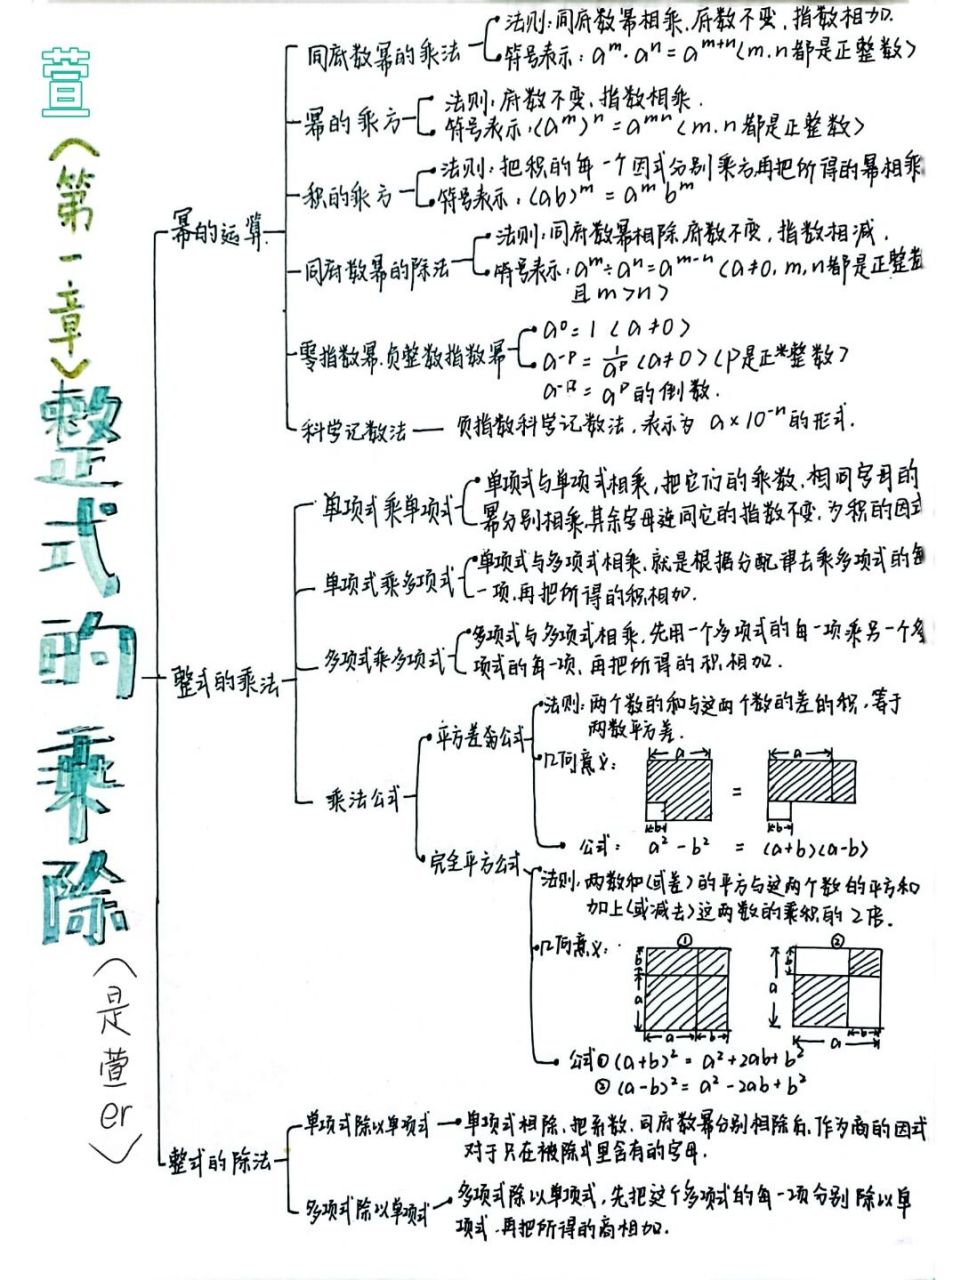 萱
(第一章)
整式的乘除
(是萱er)
幂的运算
同底数幂的乘法
法则:同底数幂相乘.底数不变,指数相加.
符号表示:aᵐ·aⁿ=aᵐ⁺ⁿ(m.n都是正整数)
幂的乘方
法则:底数不变,指数相乘.
符号表示:(aᵐ)ⁿ=aᵐⁿ(m.n都是正整数)
积的乘方
法则:把积的每一个因式分别乘方再把所得的幂相乘
符号表示:(ab)ᵐ=aᵐbᵐ
同底数幂的除法
法则:同底数幂相除底数不变,指数相减.
符号表示:aᵐ÷aⁿ=aᵐ⁻ⁿ(a≠0,m,n都是正整数
且m>n)
零指数幂.负整数指数幂
a⁰=1(a≠0)
a⁻ᵖ=1/aᵖ(a≠0)(p是正整数)
a⁻ᵖ=aᵖ的倒数.
科学记数法
负指数科学记数法,表示为 a×10⁻ⁿ的形式.
整式的乘法
单项式乘单项式
单项式与单项式相乘,把它们的乘数.相同字母的
幂分别相乘.其余字母连同它的指数不变.为积的因式
单项式乘多项式
单项式与多项式相乘.就是根据分配律去乘多项式的每
一项.再把所得的积相加.
多项式乘多项式
多项式与多项式相乘.先用一个多项式的每一项乘另一个多
项式的每一项.再把所得的积相加.
乘法公式
平方差公式
法则:两个数的和与这两个数的差的积,等于
两数平方差.
几何意义:
a
b
=
a
b
公式: a²-b² = (a+b)(a-b)
完全平方公式
法则:两数和(或差)的平方与这两个数的平方和
加上(或减去)这两数的乘积的2倍.
几何意义:
①
b
a
a
b
②
b
a
b
a
公式①(a+b)²=a²+2ab+b²
②(a-b)²=a²-2ab+b²
整式的除法
单项式除以单项式
单项式相除.把系数.同底数幂分别相除后.作为商的因式
对于只在被除式里含有的字母.
多项式除以单项式
多项式除以单项式,先把这个多项式的每一项分别除以单
项式.再把所得的商相加.